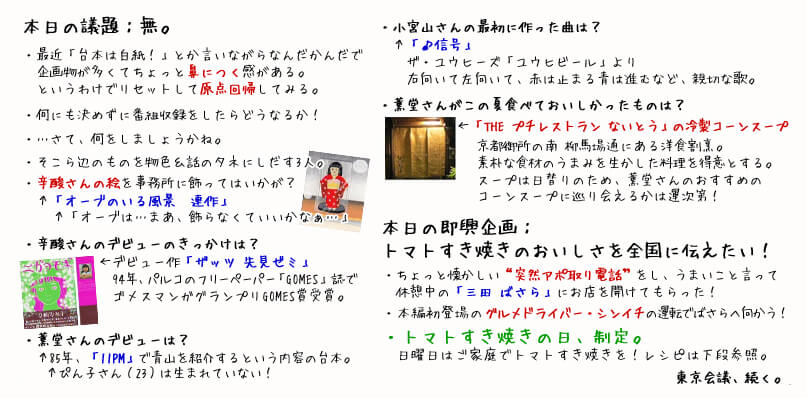 本日の議題；無。
・最近「台本は白紙！」とか言いながらなんだかんだで
企画物が多くてちょっと鼻につく感がある。
というわけでリセットして原点回帰してみる。
・何にも決めずに番組収録をしたらどうなるか！
・…さて、何をしましょうかね。
・そこら辺のものを物色＆話のタネにしだす3人。
・辛酸さんの絵を事務所に飾ってはいかが？
↑「オーブのいる風景　連作」
↑「オーブは…まあ、飾らなくていいかなぁ…」
・辛酸さんのデビューのきっかけは？
←デビュー作「ザッツ 先見ゼミ」
94年、パルコのフリーペーパー「GOMES」誌で
ゴメスマンガグランプリGOMES賞受賞。
・薫堂さんのデビューは？
↑85年、「11PM」で青山を紹介するという内容の台本。
↑ぴん子さん（23）は生まれていない！
・小宮山さんの最初に作った曲は？
↑「♪信号」
ザ・ユウヒーズ「ユウヒビール」より
右向いて左向いて、赤は止まる青は進むなど、親切な歌。
・薫堂さんがこの夏食べておいしかったものは？
←「THE プチレストラン ないとう」の冷製コーンスープ
京都御所の南 柳馬場通にある洋食割烹。
素朴な食材のうまみを生かした料理を得意とする。
スープは日替りのため、薫堂さんのおすすめの
コーンスープに巡り会えるかは運次第！
本日の即興企画；
トマトすき焼きのおいしさを全国に伝えたい！
・ちょっと懐かしい“突然アポ取り電話”をし、うまいこと言って
休憩中の「三田 ばさら」にお店を開けてもらった！
・本編初登場のグルメドライバー・シンイチの運転でばさらへ向かう！
・トマトすき焼きの日、制定。
日曜日はご家庭でトマトすき焼きを！レシピは下段参照。
東京会議、続く。